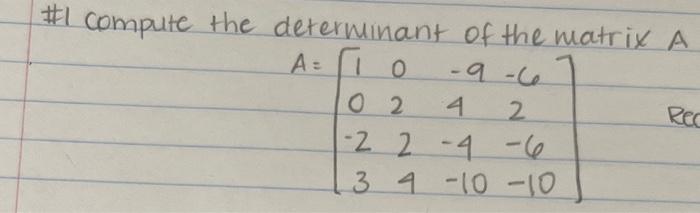 #1 compute the determinant of the matrix A
A = [1 0 -9 -6
0 2 4 2
-2 2 -4 -6
3 4 -10 -10]
Rec